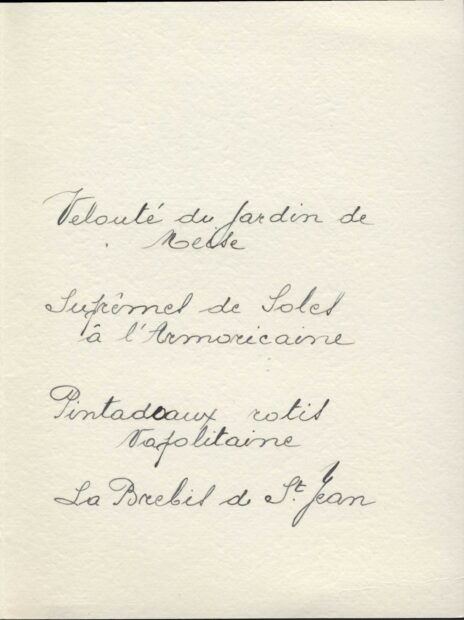 Velouté du Jardin de
Meise
Suprêmes de Soles
à l'Armoricaine
Pintadeaux rotis
Napolitaine
La Brebis de St Jean